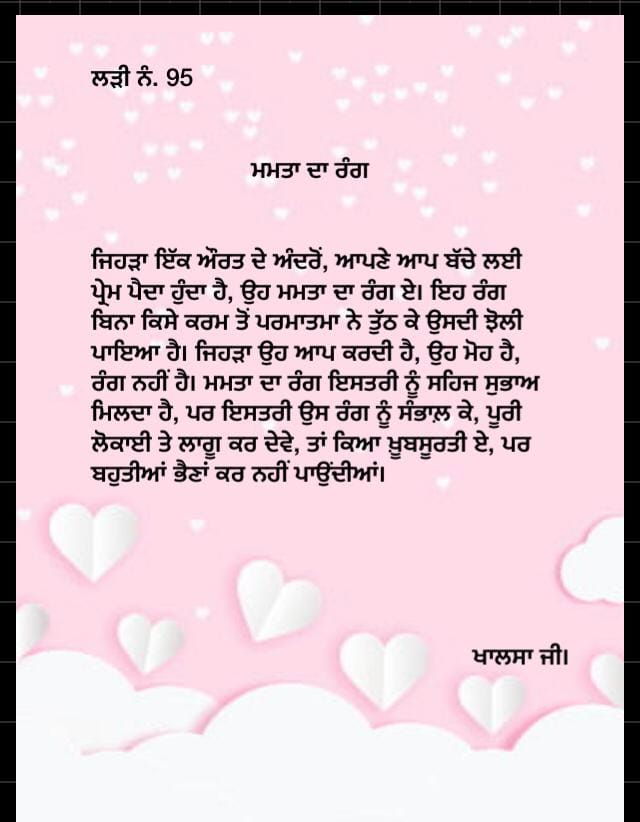 ਲੜੀ ਨੰ. 95
ਮਮਤਾ ਦਾ ਰੰਗ
ਜਿਹੜਾ ਇੱਕ ਔਰਤ ਦੇ ਅੰਦਰੋਂ, ਆਪਣੇ ਆਪ ਬੱਚੇ ਲਈ
ਪ੍ਰੇਮ ਪੈਦਾ ਹੁੰਦਾ ਹੈ, ਉਹ ਮਮਤਾ ਦਾ ਰੰਗ ਏ। ਇਹ ਰੰਗ
ਬਿਨਾ ਕਿਸੇ ਕਰਮ ਤੋਂ ਪਰਮਾਤਮਾ ਨੇ ਤੁੱਠ ਕੇ ਉਸਦੀ ਝੋਲੀ
ਪਾਇਆ ਹੈ। ਜਿਹੜਾ ਉਹ ਆਪ ਕਰਦੀ ਹੈ, ਉਹ ਮੋਹ ਹੈ,
ਰੰਗ ਨਹੀਂ ਹੈ। ਮਮਤਾ ਦਾ ਰੰਗ ਇਸਤਰੀ ਨੂੰ ਸਹਿਜ ਸੁਭਾਅ
ਮਿਲਦਾ ਹੈ, ਪਰ ਇਸਤਰੀ ਉਸ ਰੰਗ ਨੂੰ ਸੰਭਾਲ਼ ਕੇ, ਪੂਰੀ
ਲੋਕਾਈ ਤੇ ਲਾਗੂ ਕਰ ਦੇਵੇ, ਤਾਂ ਕਿਆ ਖ਼ੂਬਸੂਰਤੀ ਏ, ਪਰ
ਬਹੁਤੀਆਂ ਭੈਣਾਂ ਕਰ ਨਹੀਂ ਪਾਉਂਦੀਆਂ।
ਖਾਲਸਾ ਜੀ।